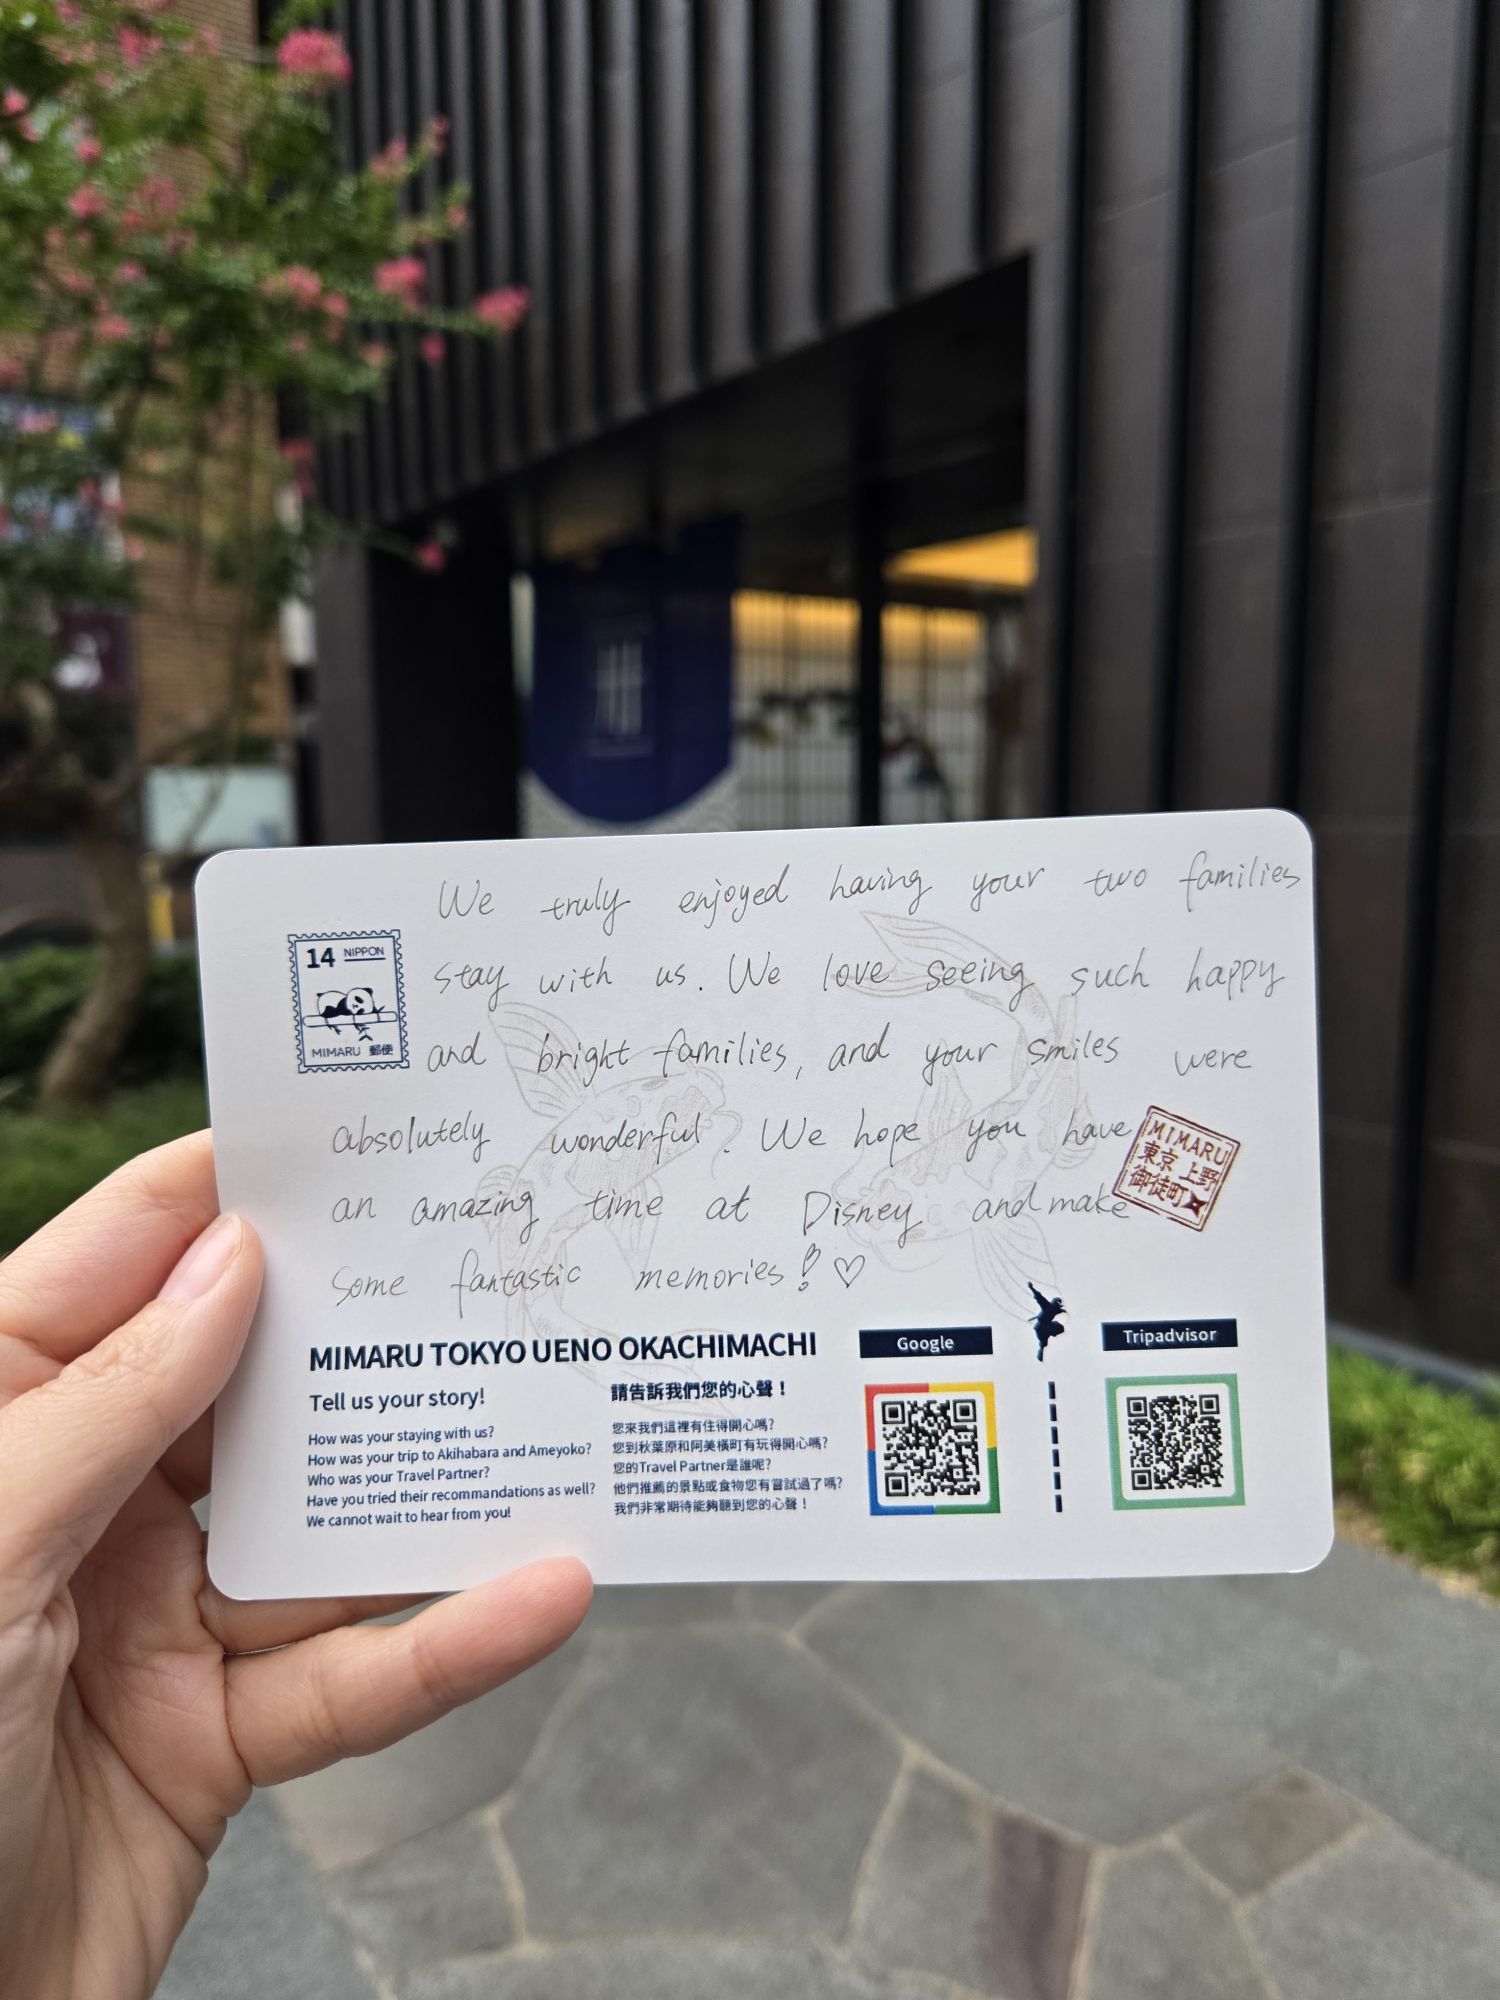 We truly enjoyed having your two families
stay with us. We love seeing such happy
and bright families, and your smiles were
absolutely wonderful. We hope you have
an amazing time at Disney and make
some fantastic memories! ♡
14 NIPPON
MIMARU 郵便
MIMARU
東京 上野
御徒町
MIMARU TOKYO UENO OKACHIMACHI
Tell us your story!
How was your staying with us?
How was your trip to Akihabara and Ameyoko?
Who was your Travel Partner?
Have you tried their recommandations as well?
We cannot wait to hear from you!
請告訴我們您的心聲！
您來我們這裡有住得開心嗎?
您到秋葉原和阿美橫町有玩得開心嗎?
您的Travel Partner是誰呢?
他們推薦的景點或食物您有嘗試過了嗎?
我們非常期待能夠聽到您的心聲！
Google
Tripadvisor